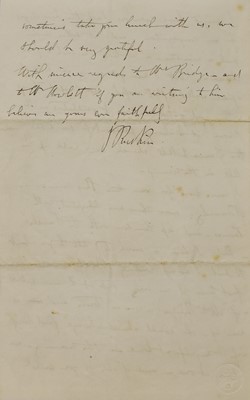 sometimes take your lunch with us. we
should be very grateful.
With sincere regards to Mrs Pridge and
to Mr Howlett if you are writing to him
believe me yours ever faithfully
J Ruskin